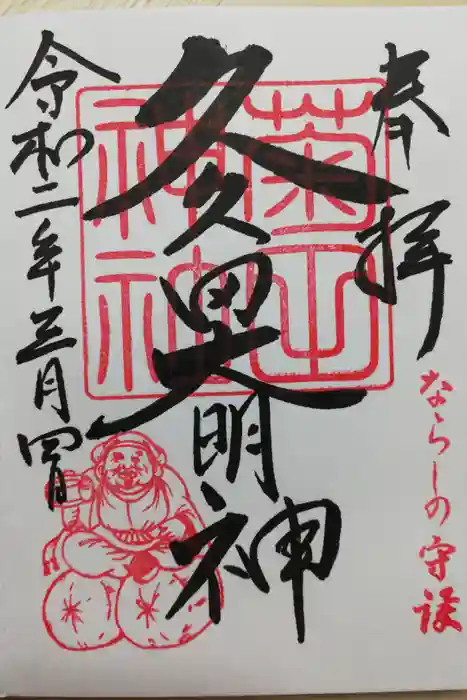 奉拝
ならしの守護
久久田大明神
菊田
神社
令和二年三月四日